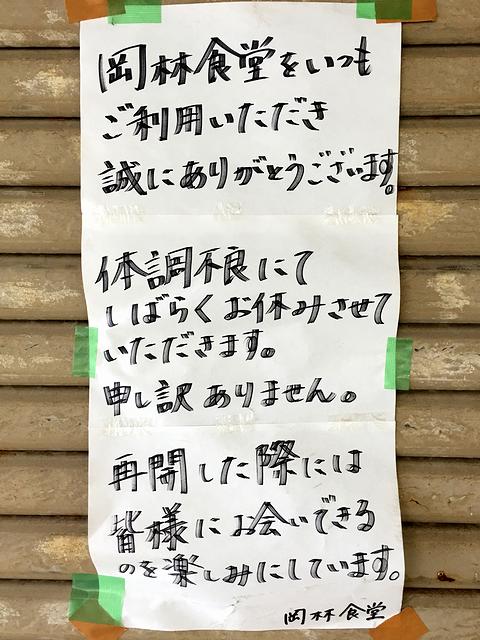 岡林食堂をいつも
ご利用いただき
誠にありがとうございます。
体調不良にて
しばらくお休みさせて
いただきます。
申し訳ありません。
再開した際には
皆様にお会いできる
のを楽しみにしています。
岡林食堂